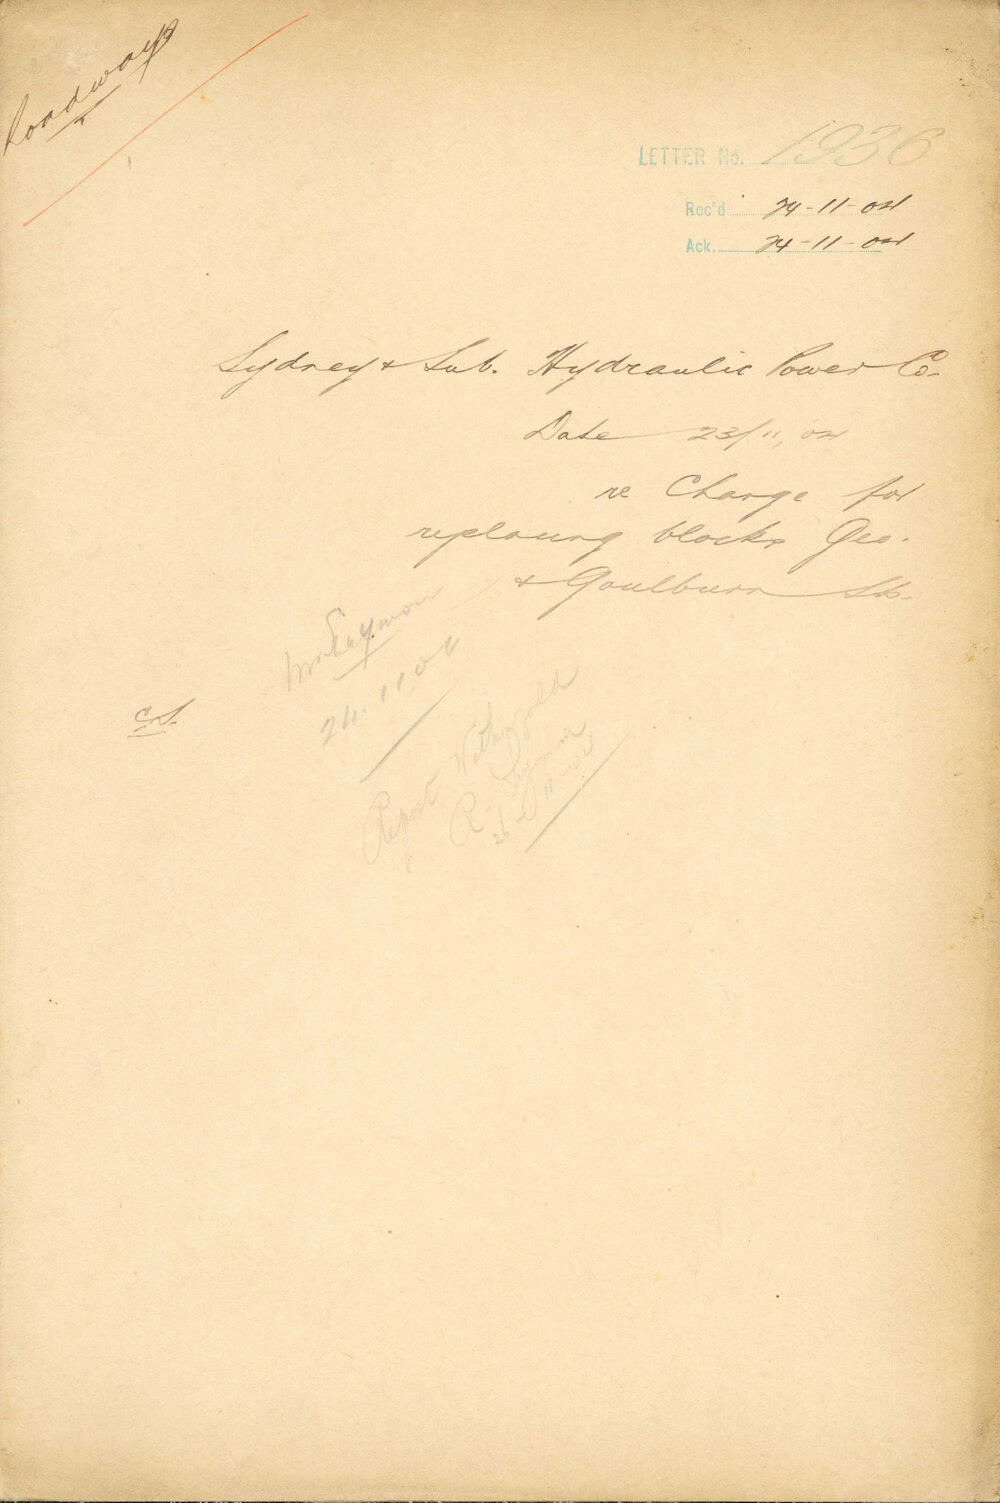 Roadways
LETTER No. 1936
Rec'd 24-11-04
Ack. 24-11-04
Sydney & Sub. Hydraulic Power Co.
Date 23/11/04
re Charge for
replacing blocks Geo.
& Goulburn Sts.
Mr Seymour
24.11.04
C.S.
Report Withn
R. Seymour
26-11-04